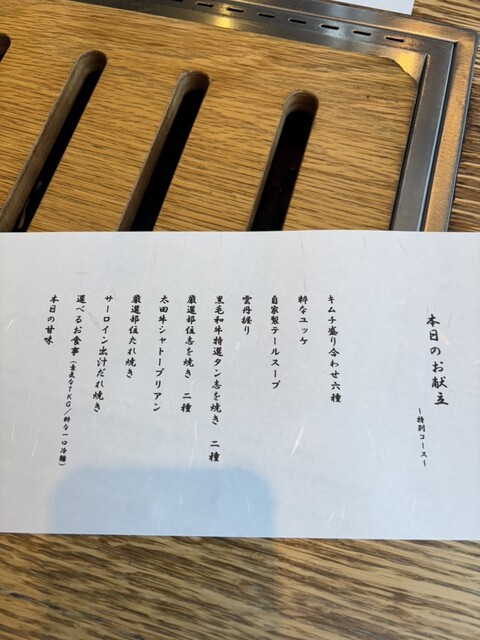 本日のお献立
〜特別コース〜
キムチ盛り合わせ六種
粋なユッケ
自家製テールスープ
雲丹握り
黒毛和牛特選タン志を焼き 二種
厳選部位志を焼き 二種
太田牛シャトーブリアン
厳選部位たれ焼き
サーロイン出汁だれ焼き
選べるお食事(贅沢なTKG/粋な一口冷麺)
本日の甘味